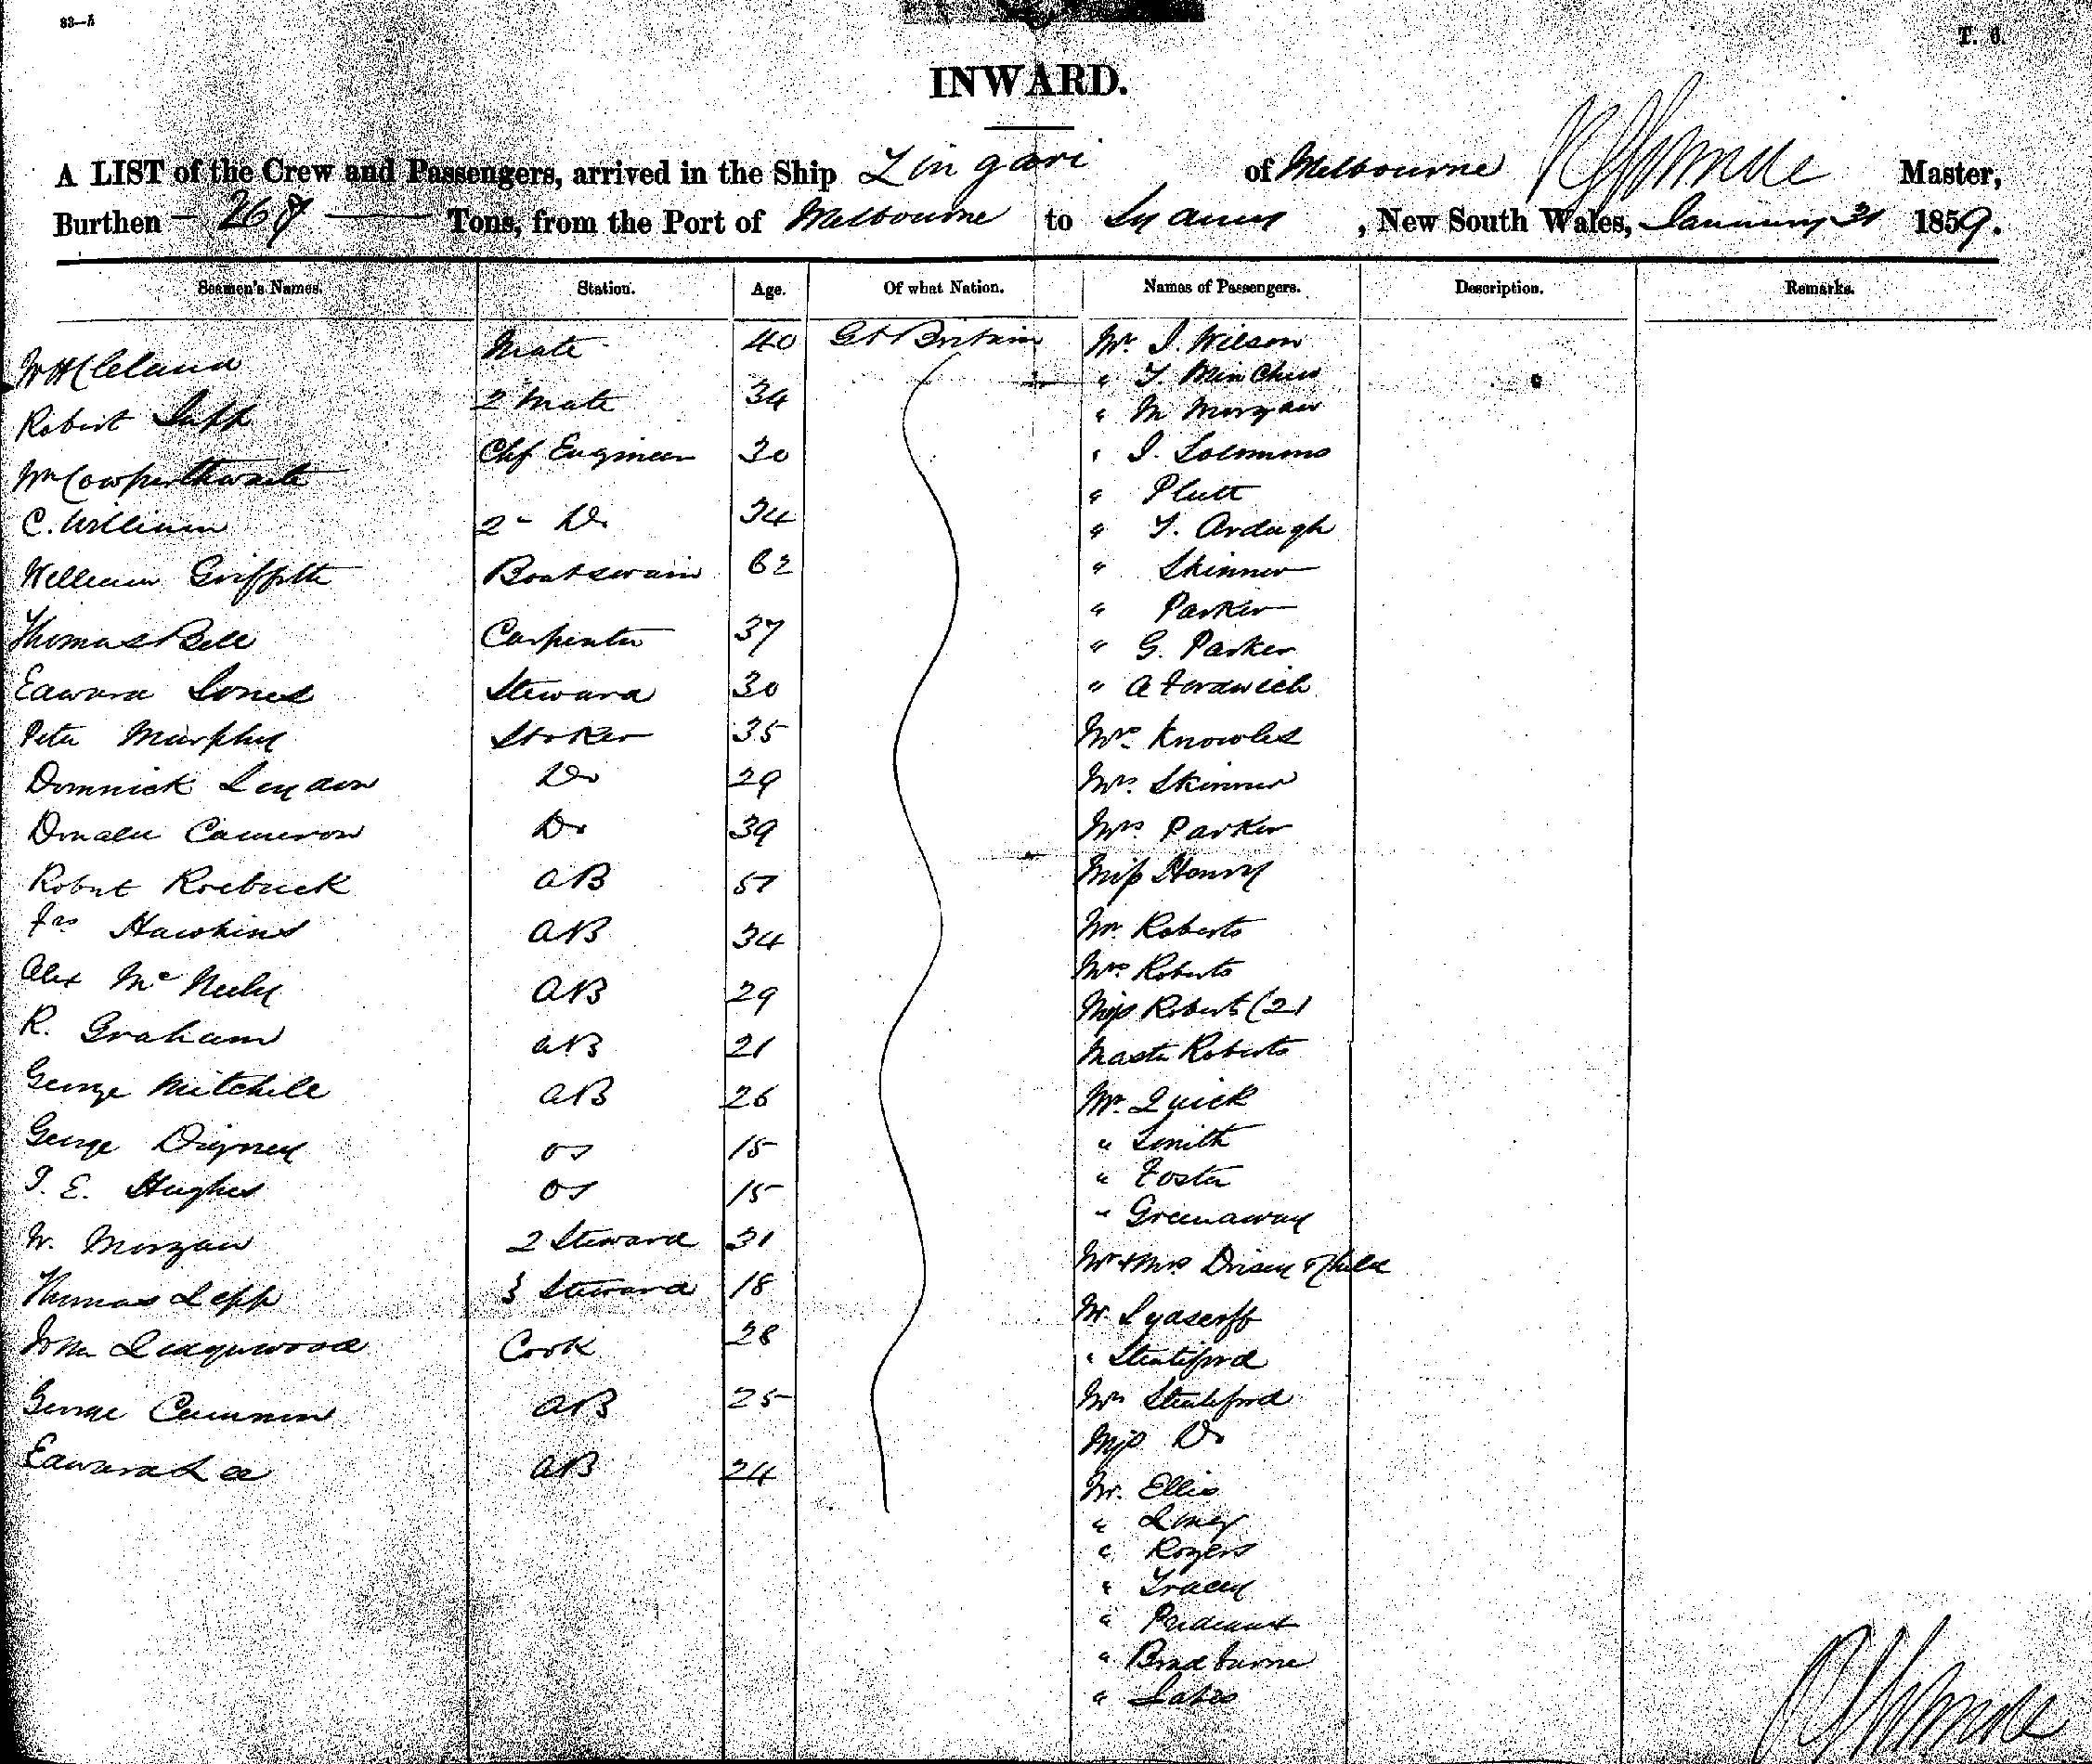 83—A
T. 6.
INWARD.
A LIST of the Crew and Passengers, arrived in the Ship Zingari of Melbourne Master,
Burthen — 267 — Tons, from the Port of Melbourne to Sydney, New South Wales, January 31 1859.
Seamen's Names. Station. Age. Of what Nation. Names of Passengers. Description. Remarks.
W H Cleland Mate 40 Gt Britain Mr. J. Wilson
" T. Minchin
Robert 2 Mate 34 " M Morgan
Wm Cowperthwaite Chf Engineer 30 " J. Solomons
" Plutt
C. William 2 - Do 34 " T. Ardagh
William Griffith Boatswain 62 " Skinner
" Parker
Thomas Bell Carpenter 37 " G. Parker
Edward Jones Steward 30 " A Fordwich
Peter Murphy Stoker 35 Mrs Knowles
Domnick Lendon Do 29 Mrs. Skinner
Donald Cameron Do 39 Mrs Parker
Robert Roebuck AB 57 Miss Henry
Jas Hawkins AB 34 Mr. Roberts
Mrs Roberts
Alex McNeely AB 29 Miss Roberts (2)
R. Graham AB 21 Master Roberts
George Mitchell AB 26 Mr. Quick
George Digney OS 15 " Smith
J. E. Hughes OS 15 " Foster
" Greenaway
W. Morgan 2 Steward 31 Mr & Mrs & Child
Thomas Lepp 3 Steward 18 Mr.
Wm Ledgerwood Cook 28 " Stentiford
George Cummin AB 25 Mrs Stentiford
Miss Do
Edward Lee AB 24 Mr. Ellis
"
" Rogers
" Tracey
" Prideaux
" Bradburne
"